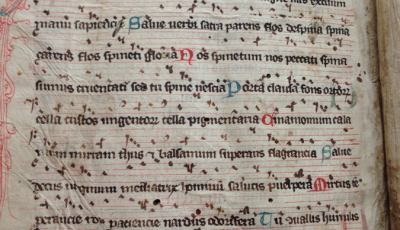 manu sapiencie Salue verbi sacra parens flos de spina spina
carens flos spineti gloria Nos spinetum nos peccati spina
sumus cruentati sed tu spine nescia Porta clausa fons ortorum
cella custos ungentorum cella pigmentaria Cinamomum cala
mum mirram thus et balsamum superans flagrancia Salue
decus virginum mediatrix hominum salutis puerpera Mirtus te
perancie rosa paciencie nardus odorifera Tu uallis humilis